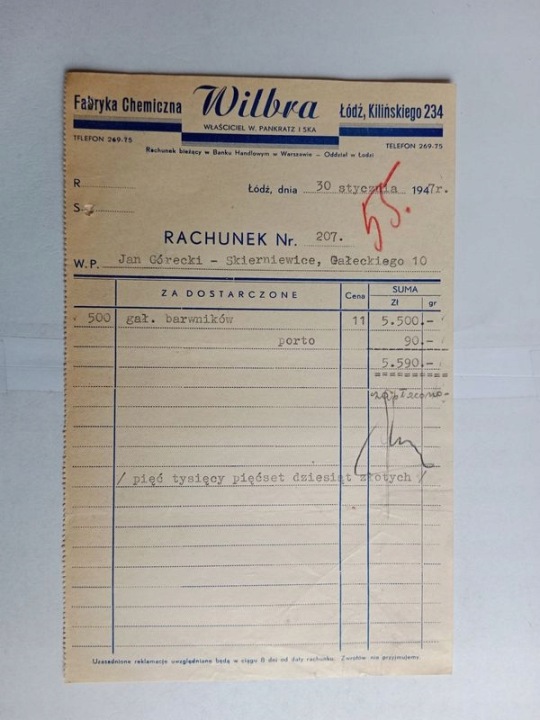 Fabryka Chemiczna Wilbra Łódź, Kilińskiego 234
WŁAŚCICIEL W. PANKRATZ I SKA
TELEFON 269-75 TELEFON 269-75
Rachunek bieżący w Banku Handlowym w Warszawie – Oddział w Łodzi
R
Łódź, dnia 30 stycznia 1947r.
S
55.
RACHUNEK Nr. 207.
W.P. Jan Górecki - Skierniewice, Gałeckiego 10
ZA DOSTARCZONE Cena SUMA
Zł gr
500 gał. barwników 11 5.500.-
porto 90.-
5.590.-
zapłacono
/ pięć tysięcy pięćset dziesiąt złotych /
Uzasadnione reklamacje uwzględniane będą w ciągu 8 dni od daty rachunku. Zwrotów nie przyjmujemy.